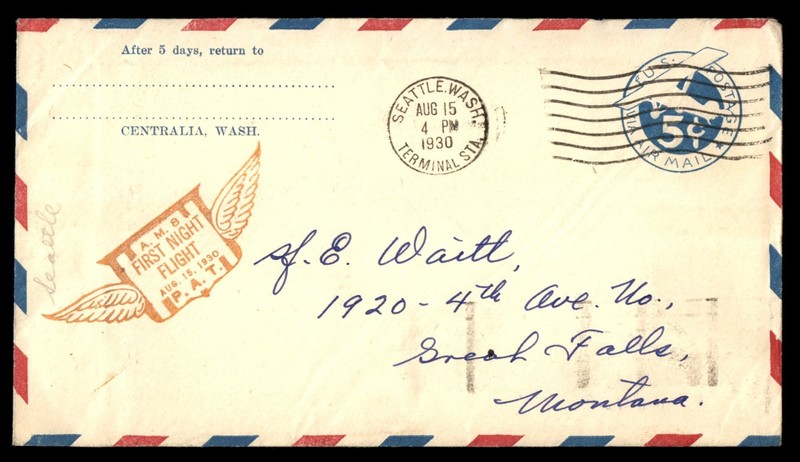 After 5 days, return to
CENTRALIA, WASH.
SEATTLE, WASH.
AUG 15
4 PM
1930
TERMINAL STA.
U.S. POSTAGE
5¢
VIA AIR MAIL
A.M. 8
FIRST NIGHT
FLIGHT
AUG. 15, 1930
P.A.T.
Seattle
E. Waitt,
1920 - 4th Ave. No.,
Great Falls,
Montana.